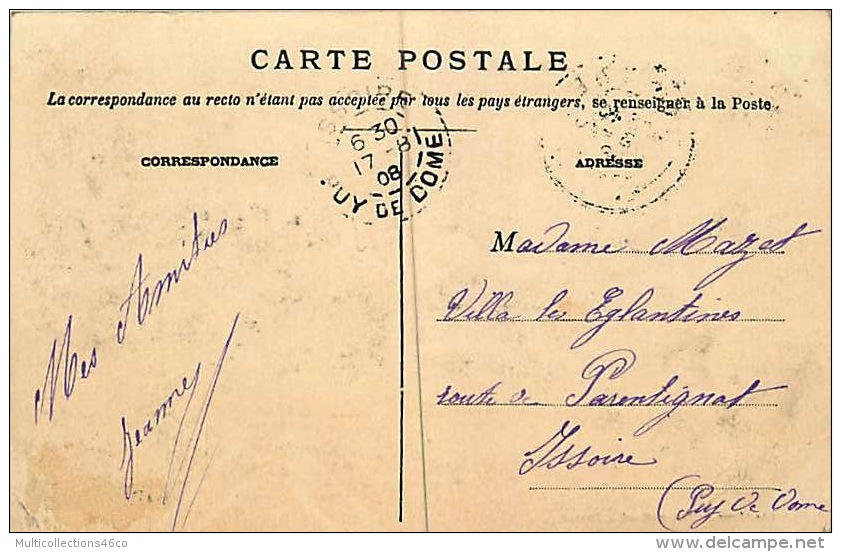 CARTE POSTALE
La correspondance au recto n'étant pas acceptée par tous les pays étrangers, se renseigner à la Poste
CORRESPONDANCE
ADRESSE
6 30
17 - 8
08
PUY DE DOME
Mes Amitiés
Jeanne
Madame Mazat
Villa les Eglantines
route de Parentignat
Issoire
(Puy De Dome
Multicollections46co
delcampe.net